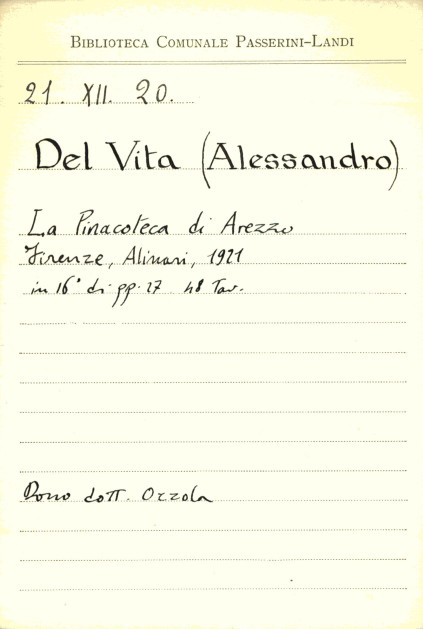 Biblioteca Comunale Passerini-Landi
21. XII. 20.
Del Vita (Alessandro)
La Pinacoteca di Arezzo
Firenze, Alinari, 1921
in 16° di pp. 27 48 Tav.
Dono dott. Ozzola